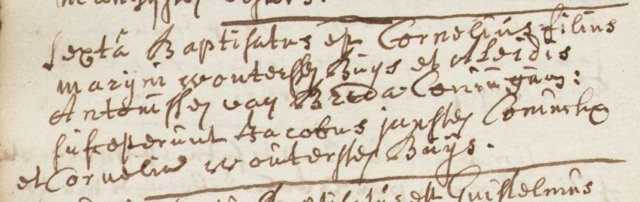 Sextâ Baptisatus est Cornelius filius
Marijni Woutersen Buijs et Aleidis
Antonissen van Breda Coniugum:
susceperunt Jacobus Janssen Coninckx
et Cornelia Woutersen Buijs.
Baptisatus est Guilielmus